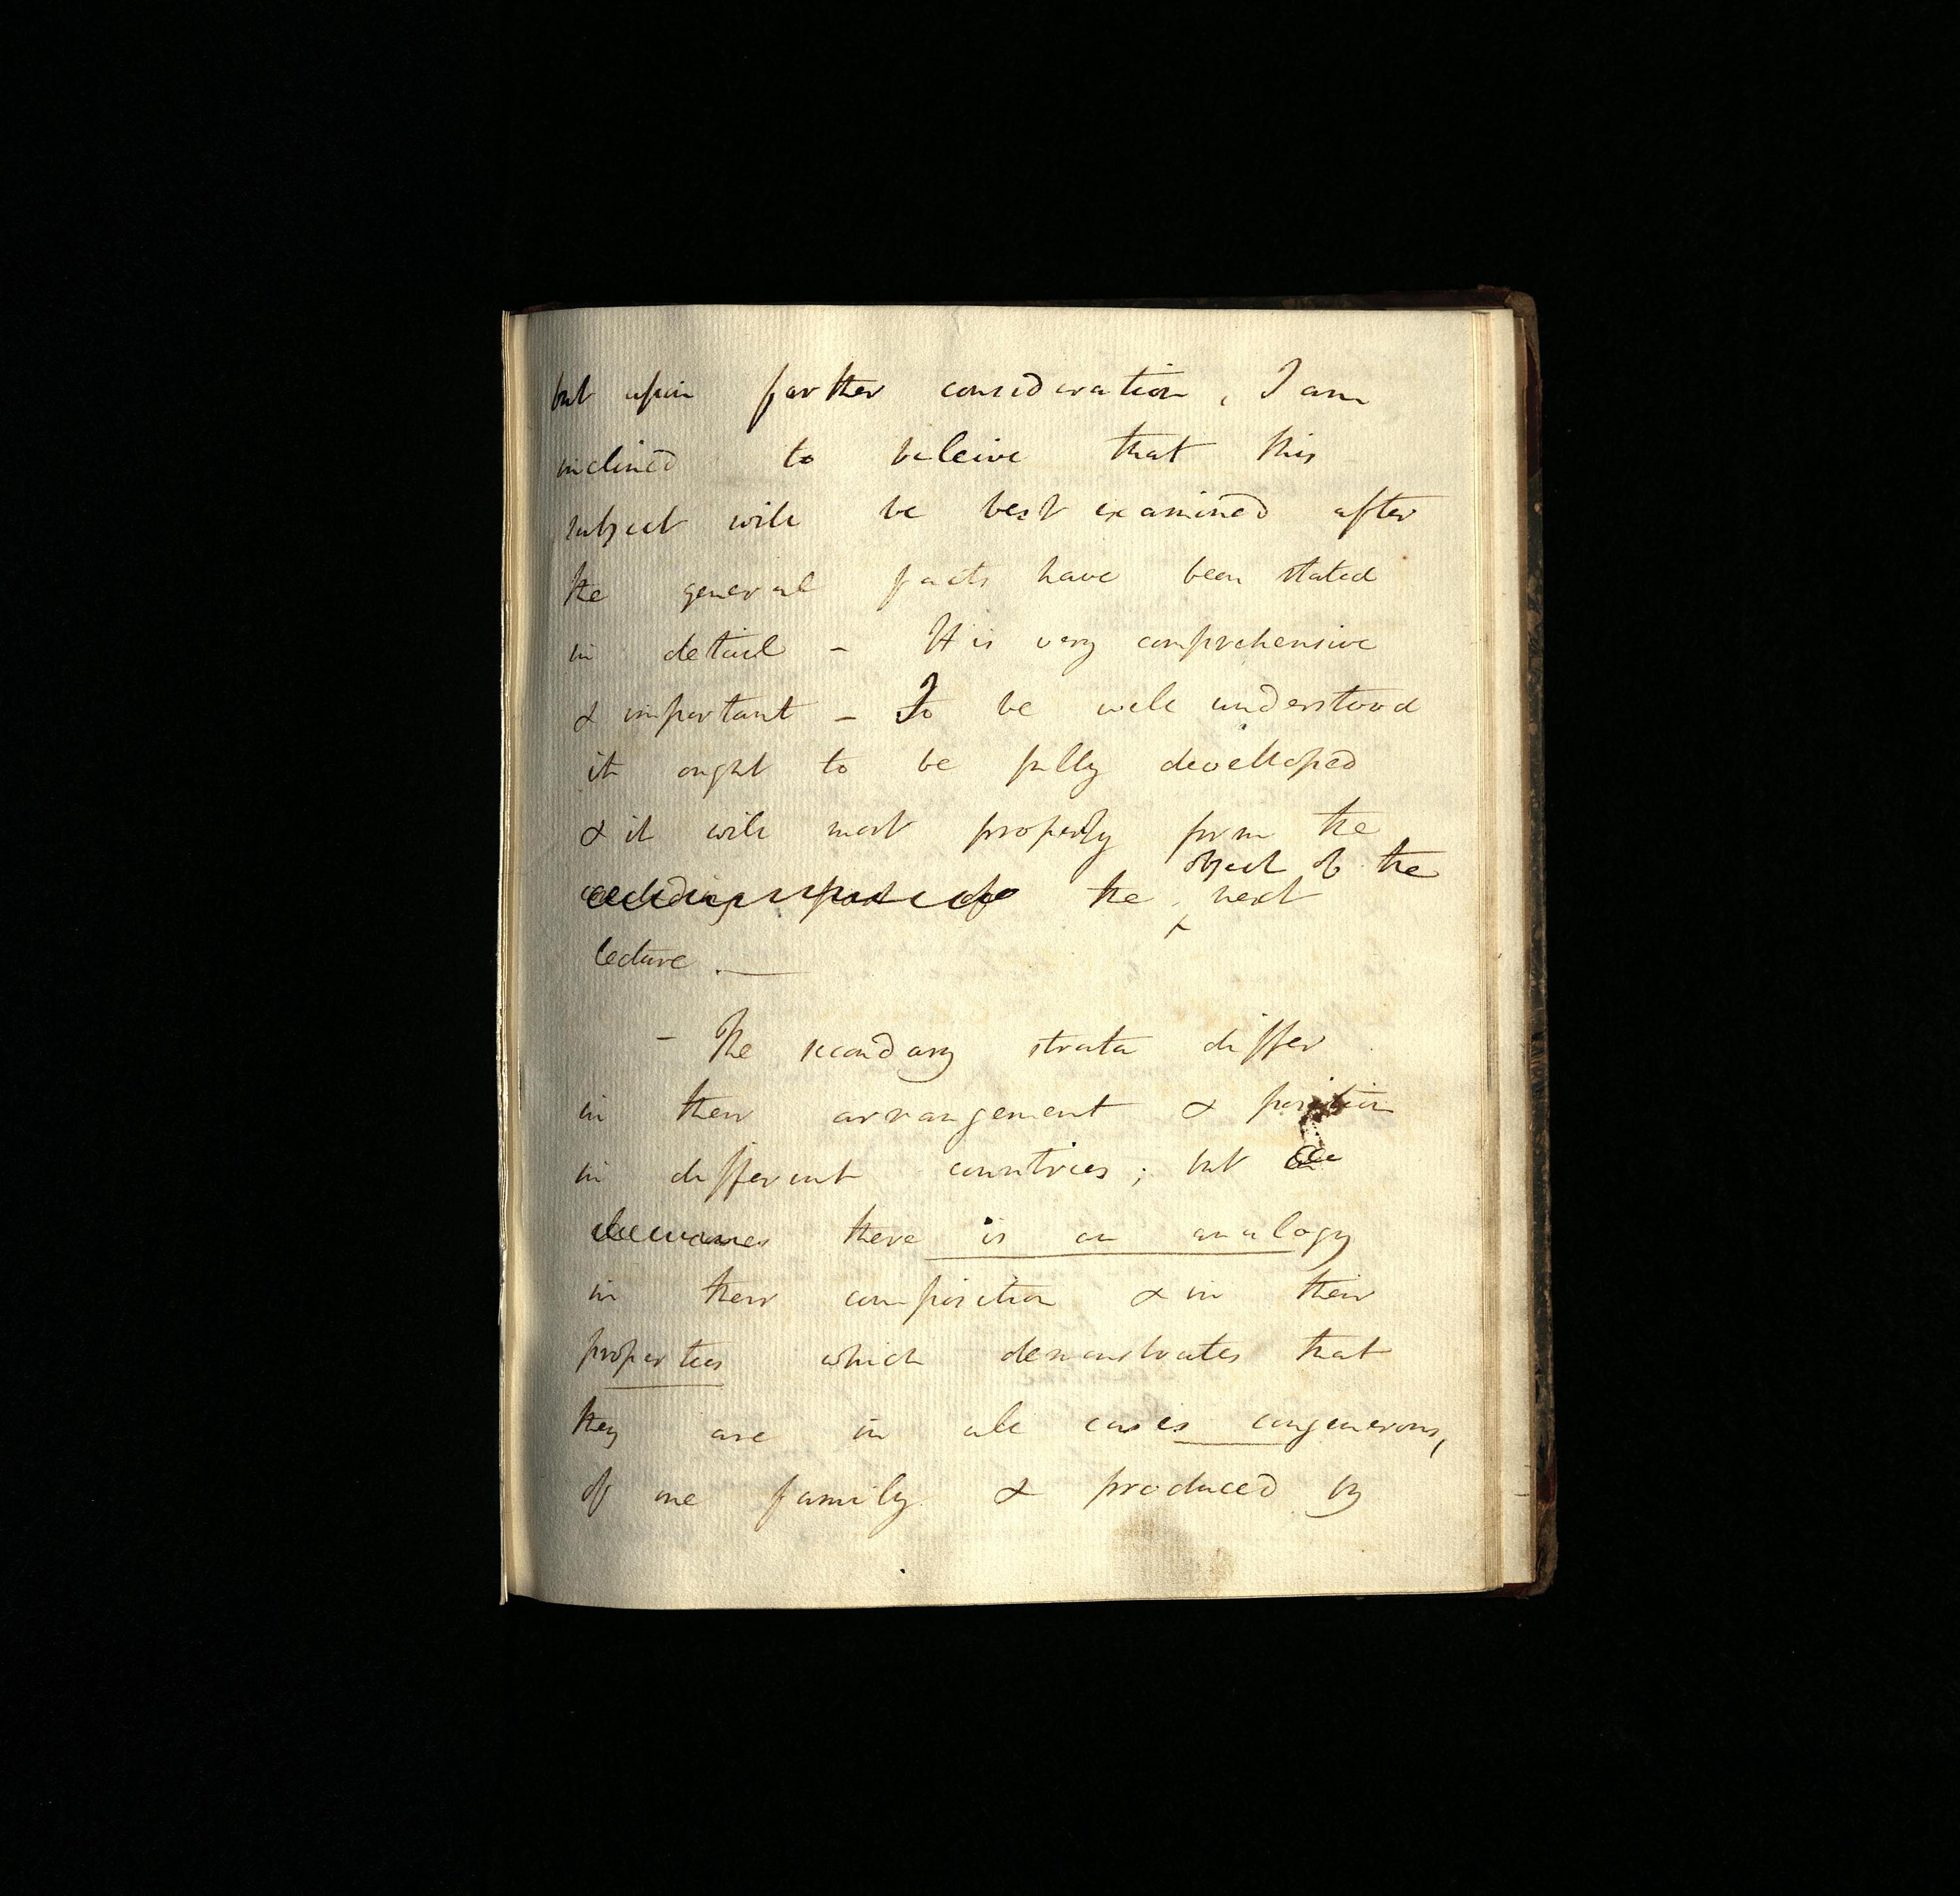 but upon farther consideration, I am
inclined to beleive that this
subject will be best examined after
the general facts have been stated
in detail - It is very comprehensive
& important - To be well understood
it ought to be fully developped
& it will most properly form the
object of the
concluding part of the next
lecture. —
- The secondary strata differ
in their arrangement & position
in different countries; but
there is an analogy
in their composition & in their
properties which demonstrates that
they are in all cases congenerous,
of one family & produced by